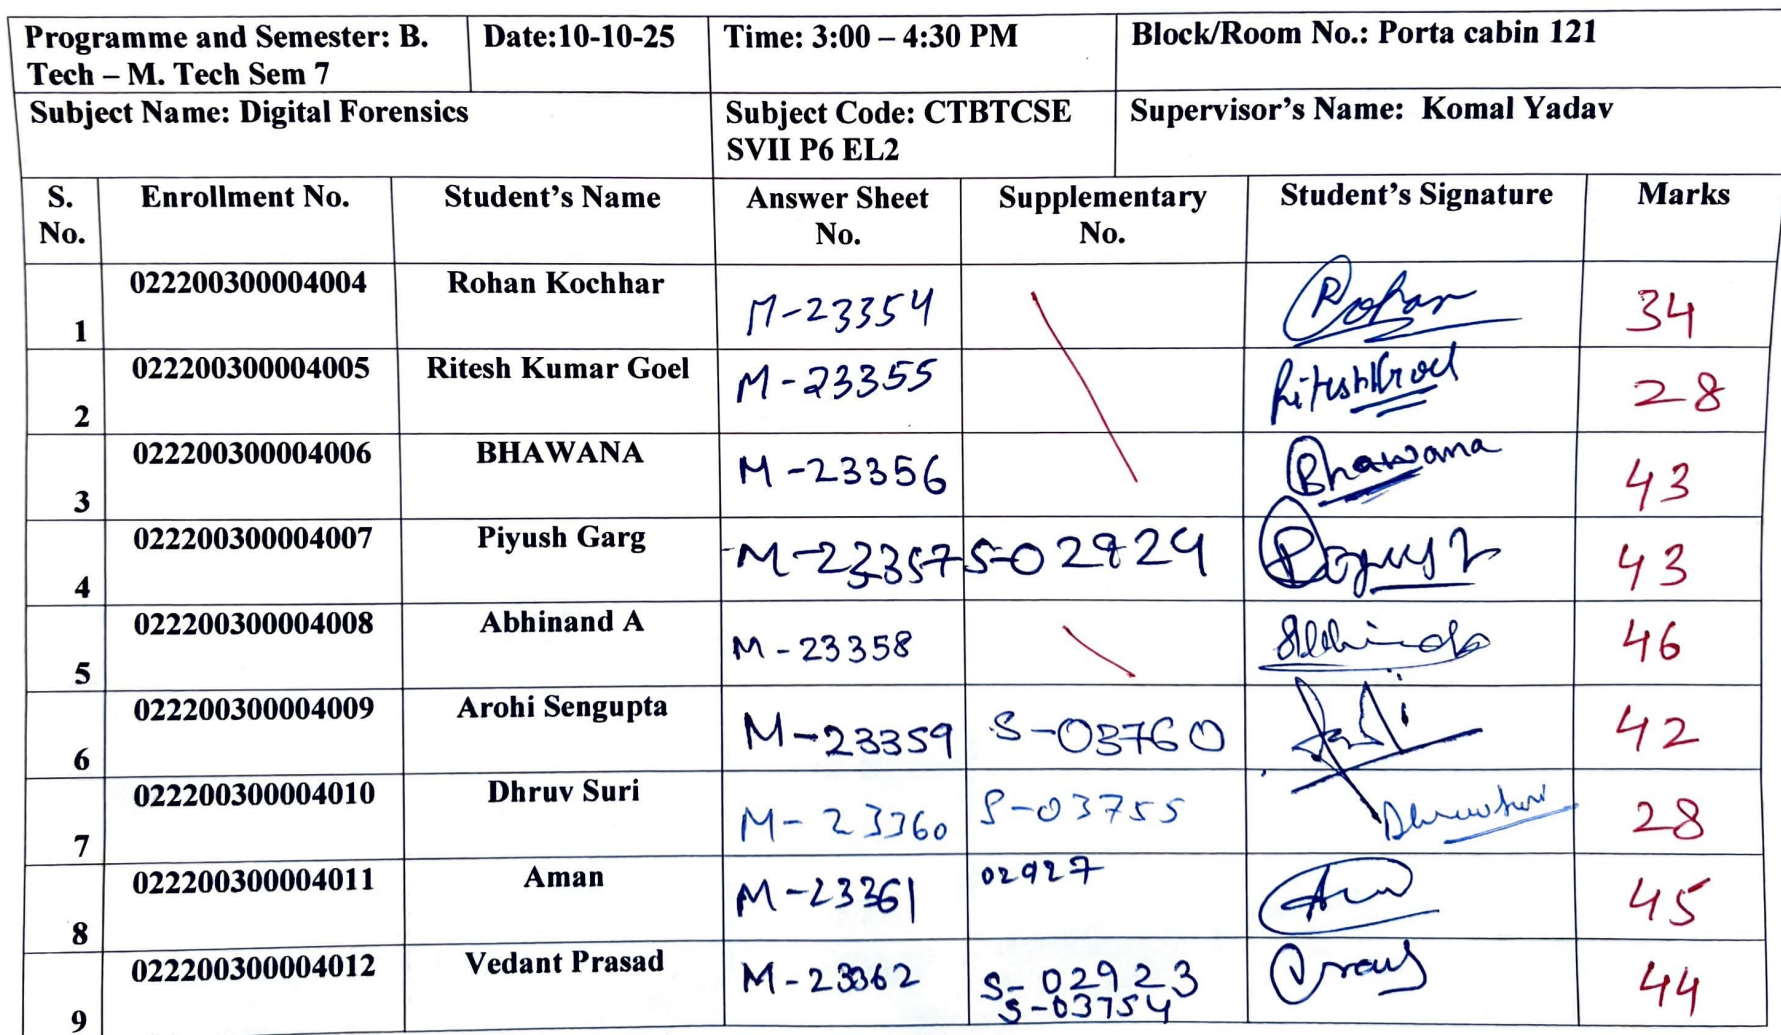 Programme and Semester: B. Tech – M. Tech Sem 7 Date:10-10-25 Time: 3:00 – 4:30 PM Block/Room No.: Porta cabin 121
Subject Name: Digital Forensics Subject Code: CTBTCSE SVII P6 EL2 Supervisor's Name: Komal Yadav
S. No. Enrollment No. Student's Name Answer Sheet No. Supplementary No. Student's Signature Marks
1 022200300004004 Rohan Kochhar M-23354 Rohan 34
2 022200300004005 Ritesh Kumar Goel M-23355 RiteshKGoel 28
3 022200300004006 BHAWANA M-23356 Bhawana 43
4 022200300004007 Piyush Garg M-23357 S-02924 43
5 022200300004008 Abhinand A M-23358 46
6 022200300004009 Arohi Sengupta M-23359 S-03760 42
7 022200300004010 Dhruv Suri M-23360 S-03755 Dhruv Suri 28
8 022200300004011 Aman M-23361 02927 45
9 022200300004012 Vedant Prasad M-23362 S-02923 S-03754 44